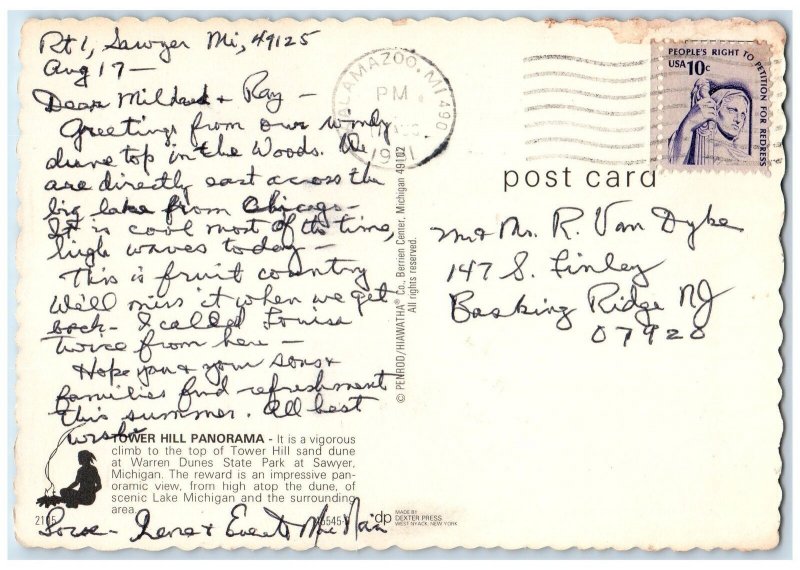 Rt 1, Sawyer Mi, 49125
Aug 17-
Dear Mildred + Ray -
Greetings from our windy
dune top in the Woods. We
are directly east across the
big lake from Chicago-
It is cool most of the time,
high waves today -
This is fruit country
We'll miss it when we get
back - I called Louise
twice from here -
Hope you + your sons +
families find refreshment
this summer. All best
wishes
TOWER HILL PANORAMA - It is a vigorous
climb to the top of Tower Hill sand dune
at Warren Dunes State Park at Sawyer,
Michigan. The reward is an impressive pan-
oramic view, from high atop the dune, of
scenic Lake Michigan and the surrounding
area.
Love - Irene + Everett Mac Nair
dp
MADE BY
DEXTER PRESS
WEST NYACK, NEW YORK
© PENROD/HIAWATHA® Co., Berrien Center, Michigan 49102
All rights reserved.
KALAMAZOO, MI 490
PM
PEOPLE'S RIGHT TO PETITION FOR REDRESS
USA 10c
post card
Mr + Mrs. R. Van Dyke
147 S. Finley
Basking Ridge NJ
07920